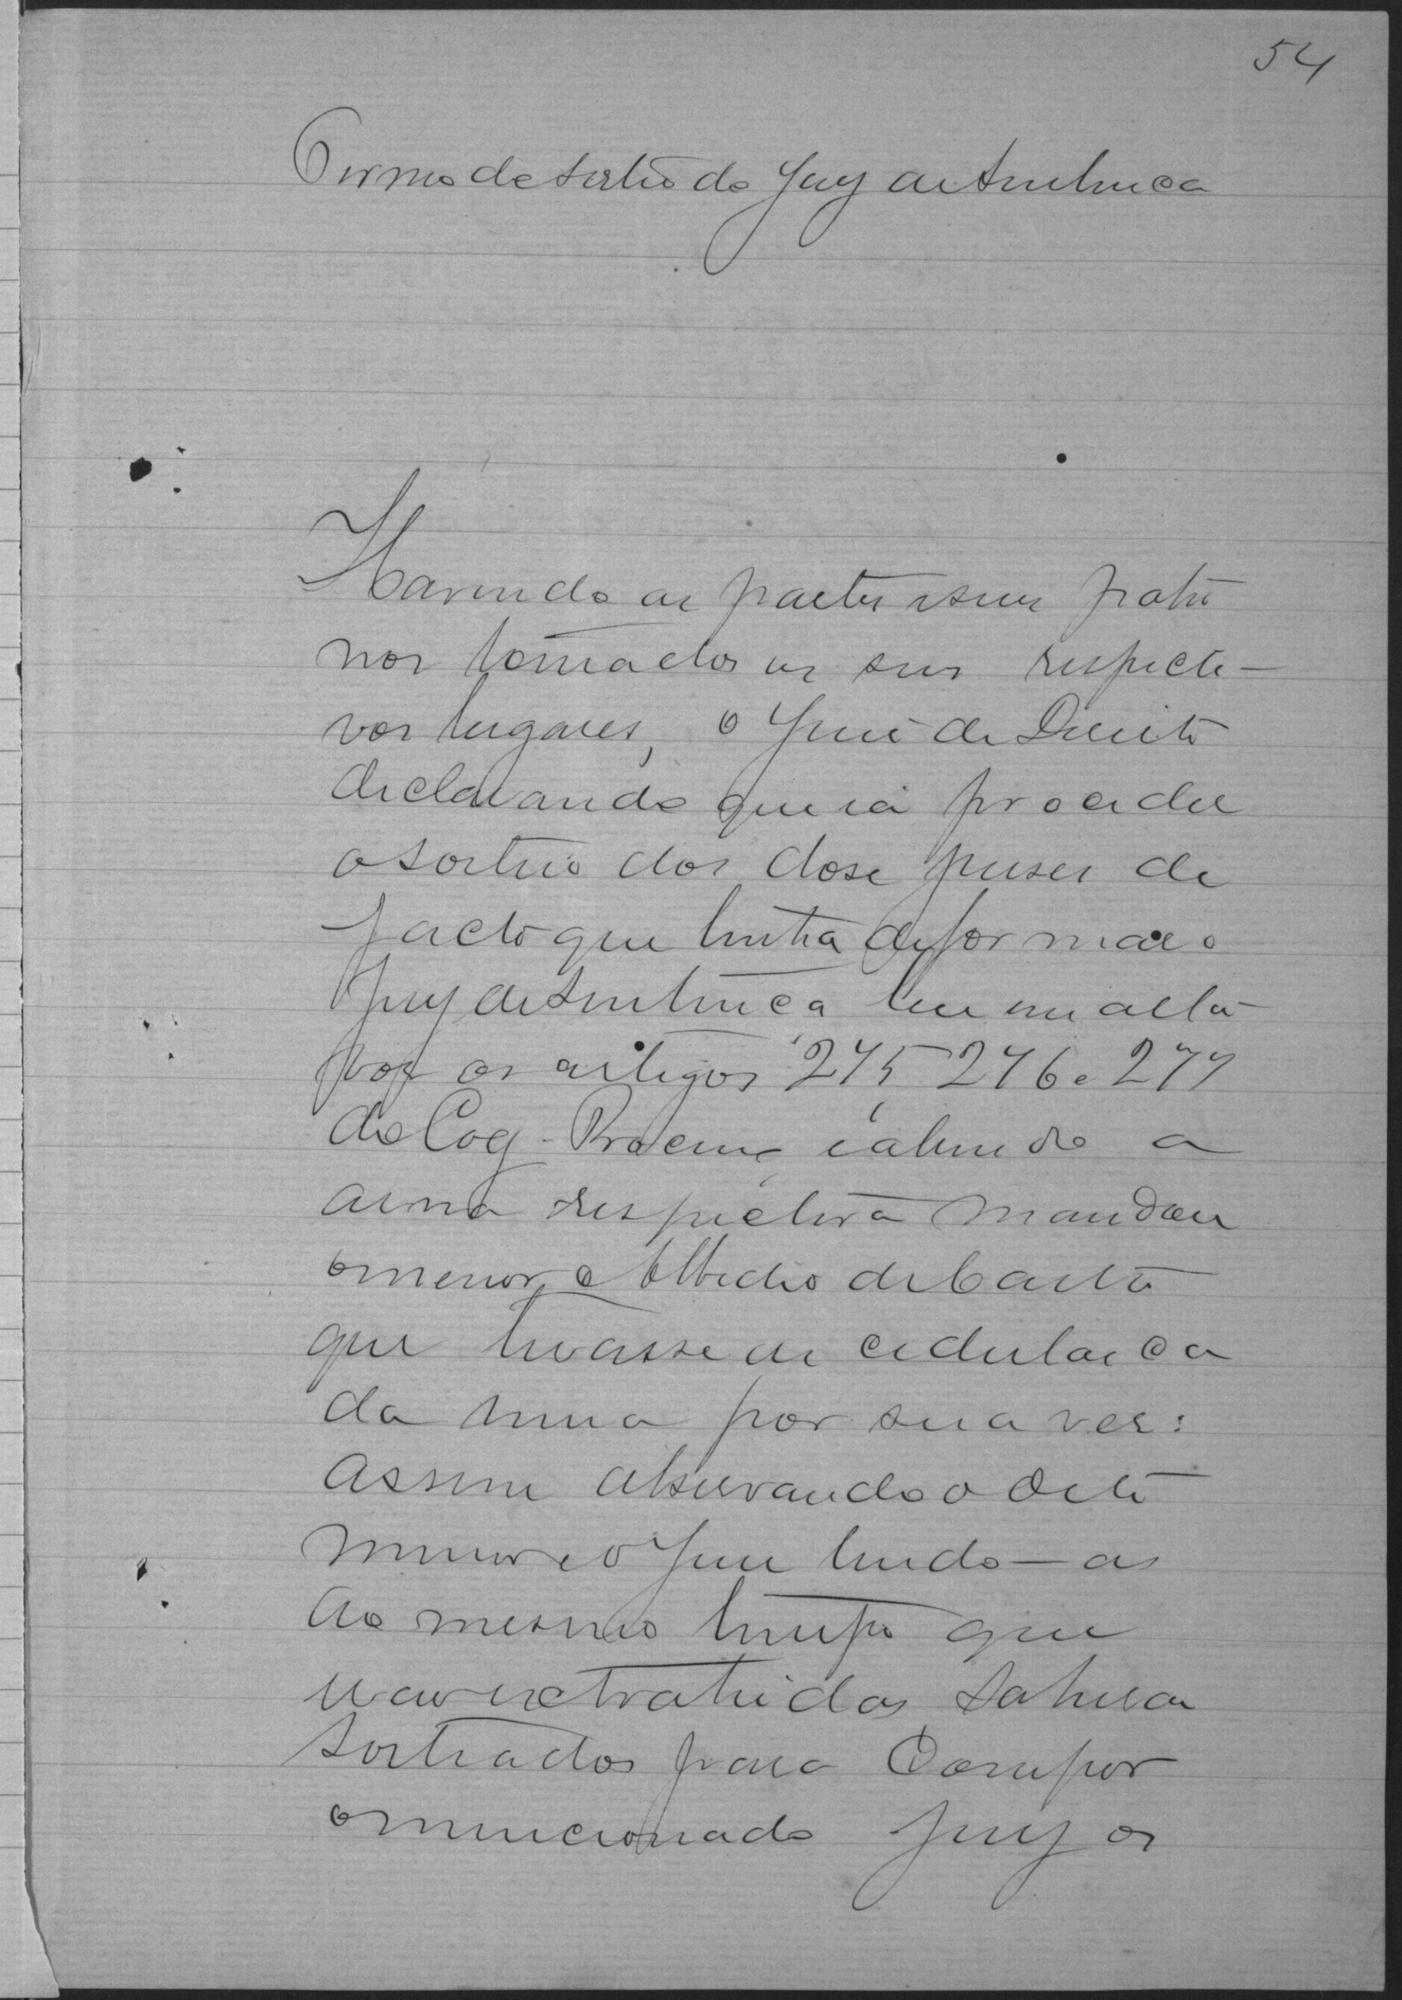 54
Termo de sorteio do Jury de Sentença
Havendo as partes e seus patro
nos tomados os seus respecti-
vos lugares, o Juiz de Direito
declarando que ia proceder
o sorteio dos dose juises de
facto que tinha de formar o
Jury de Sentença leu em alta
voz os artigos 275 276 e 277
do Cog. Process e abrindo a
urna respectiva mandou
o menor Alfredo de Castro
que tirasse as cedulas ca
da uma por sua vez:
Assim observando o dito
menor e o Juiz lendo-as
ao mesmo tempo que
eram extrahidas sahiram
sorteados para compor
o mencionado Jury os